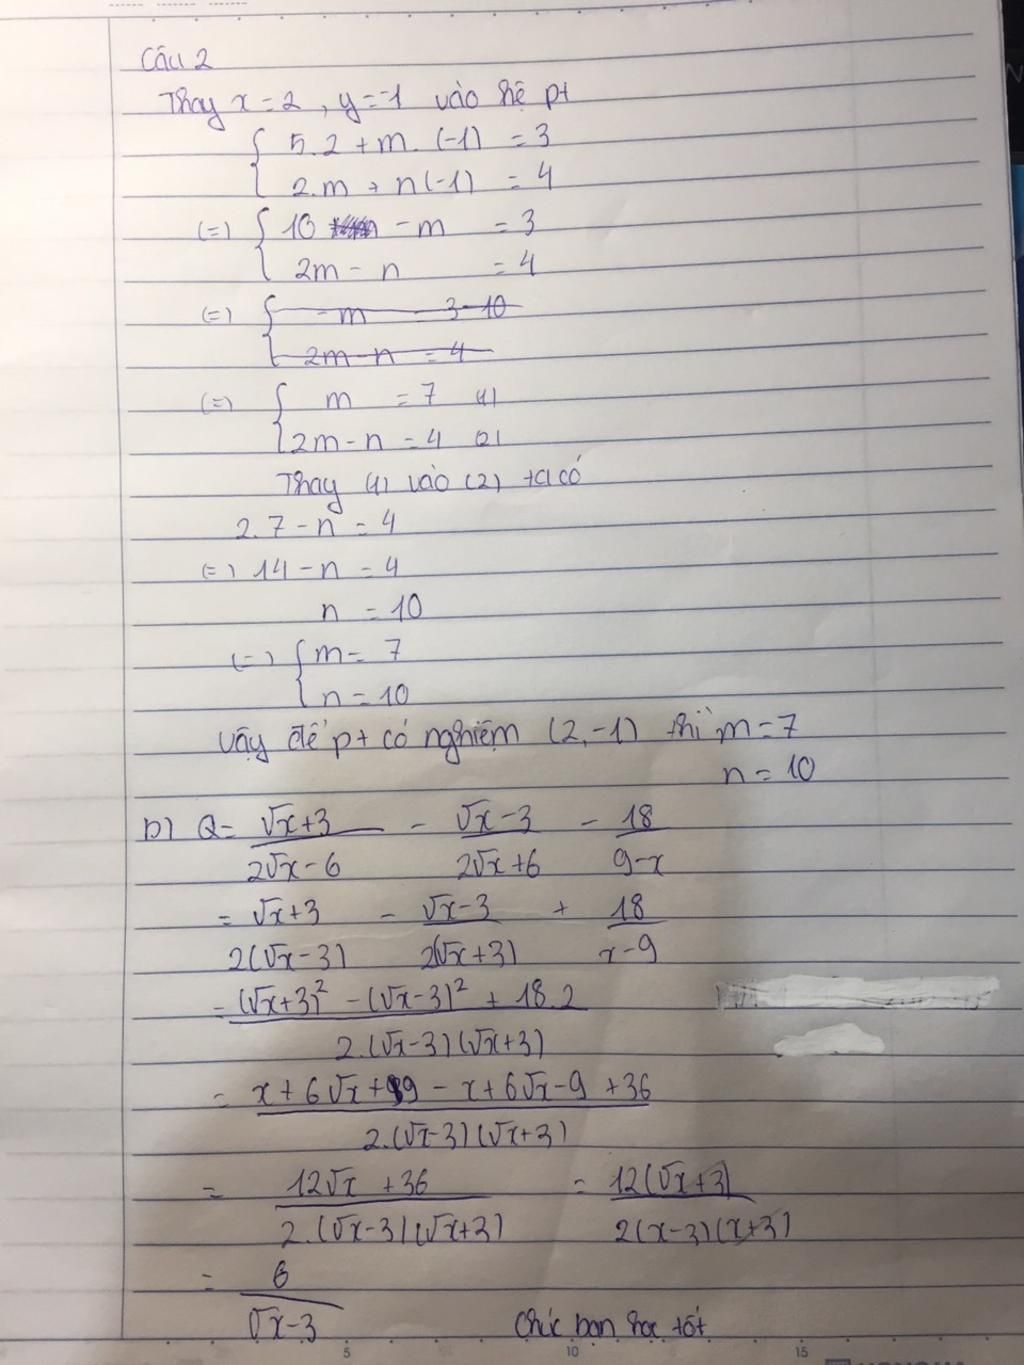 Câu 2
Thay x = 2, y = -1 vào hệ pt
{ 5.2 + m.(-1) = 3
{ 2.m + n(-1) = 4
(=) { 10 - m = 3
{ 2m - n = 4
(=) { -m = 3-10
{ 2m - n = 4
(=) { m = 7 (1)
{ 2m - n = 4 (2)
Thay (1) vào (2) ta có
2.7 - n = 4
(=) 14 - n = 4
n = 10
(=) { m = 7
{ n = 10
Vậy để pt có nghiệm (2,-1) thì m = 7
n = 10
b) Q = (√x+3)/(2√x-6) - (√x-3)/(2√x+6) - 18/(9-x)
= (√x+3)/(2(√x-3)) - (√x-3)/(2(√x+3)) + 18/(x-9)
= ((√x+3)² - (√x-3)² + 18.2)/(2.(√x-3)(√x+3))
= (x + 6√x + 9 - x + 6√x - 9 + 36)/(2.(√x-3)(√x+3))
= (12√x + 36)/(2.(√x-3)(√x+3)) = (12(√x+3))/(2(x-3)(x+3))
= 6/(√x-3)
Chúc bạn học tốt
5 10 15